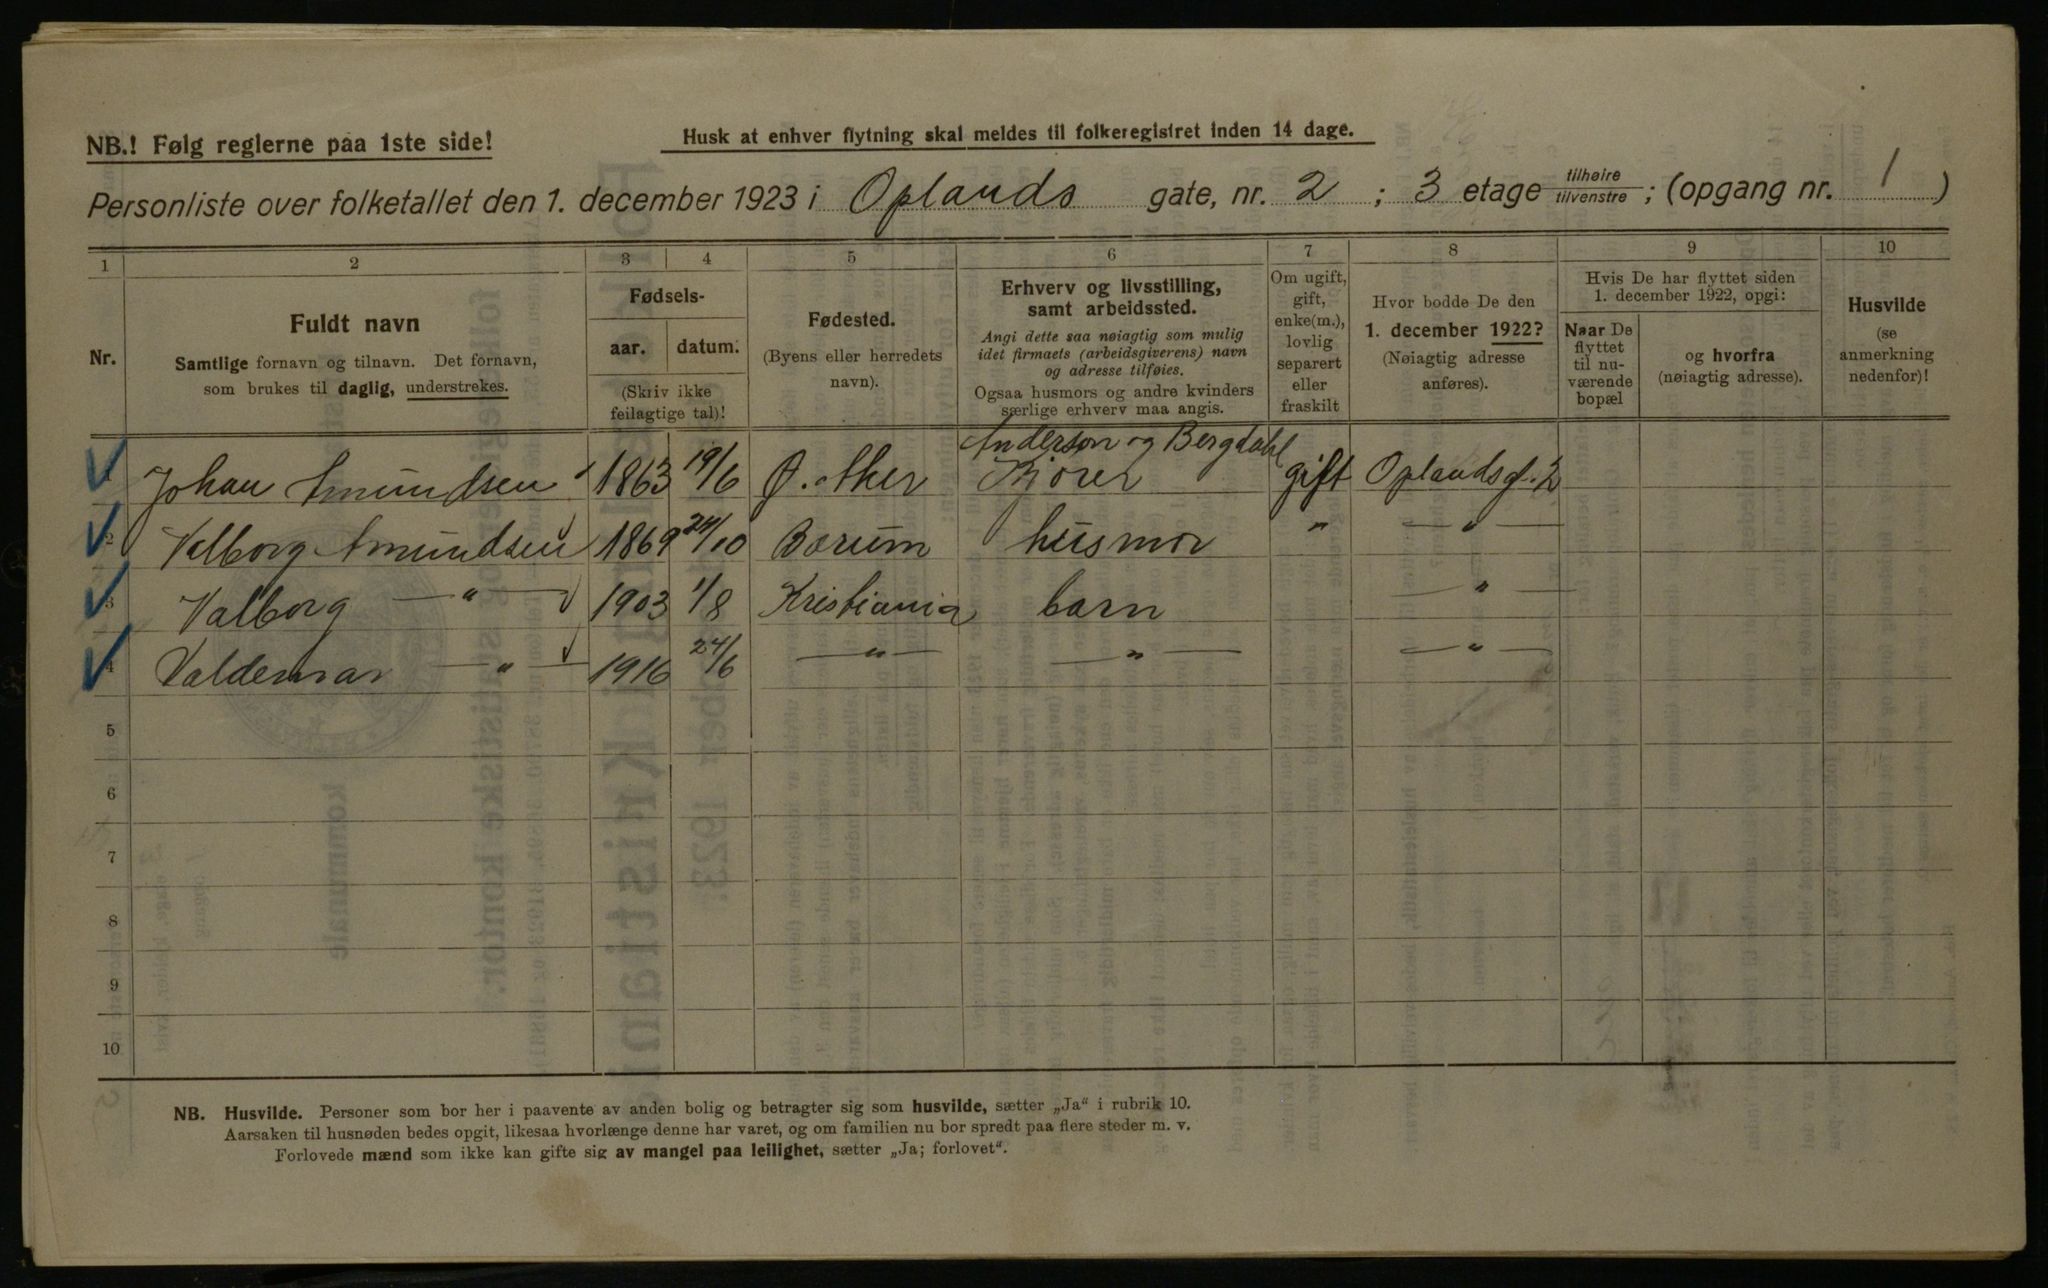 NB.! Følg reglerne paa 1ste side!
Husk at enhver flytning skal meldes til folkeregistret inden 14 dage.
Personliste over folketallet den 1. december 1923 i Oplands gate, nr. 2 ; 3 etage tilhøire/tilvenstre ; (opgang nr. 1 )
1 2 3 4 5 6 7 8 9 10
Nr.
Fuldt navn
Samtlige fornavn og tilnavn. Det fornavn,
som brukes til daglig, understrekes.
Fødsels-
aar. datum.
(Skriv ikke
feilagtige tal)!
Fødested.
(Byens eller herredets
navn).
Erhverv og livsstilling,
samt arbeidssted.
Angi dette saa nøiagtig som mulig
idet firmaets (arbeidsgiverens) navn
og adresse tilføies.
Ogsaa husmors og andre kvinders
særlige erhverv maa angis.
Om ugift,
gift,
enke(m.),
lovlig
separert
eller
fraskilt
Hvor bodde De den
1. december 1922?
(Nøiagtig adresse
anføres).
Hvis De har flyttet siden
1. december 1922, opgi:
Naar De
flyttet
til nu-
værende
bopæl
og hvorfra
(nøiagtig adresse).
Husvilde
(se
anmerkning
nedenfor)!
Anderson og Bergdahl
1 Johan Amundsen 1863 19/6 Ø. Aker Kjører gift Oplandsg. 2
2 Valborg Amundsen 1869 24/10 Bærum husmor " — " —
3 Valborg — " — 1903 1/8 Kristiania barn — " —
4 Valdemar — " — 1916 24/6 — " — — " — — " —
5
6
7
8
9
10
NB. Husvilde. Personer som bor her i paavente av anden bolig og betragter sig som husvilde, sætter „Ja“ i rubrik 10.
Aarsaken til husnøden bedes opgit, likesaa hvorlænge denne har varet, og om familien nu bor spredt paa flere steder m. v.
Forlovede mænd som ikke kan gifte sig av mangel paa leilighet, sætter „Ja; forlovet“.